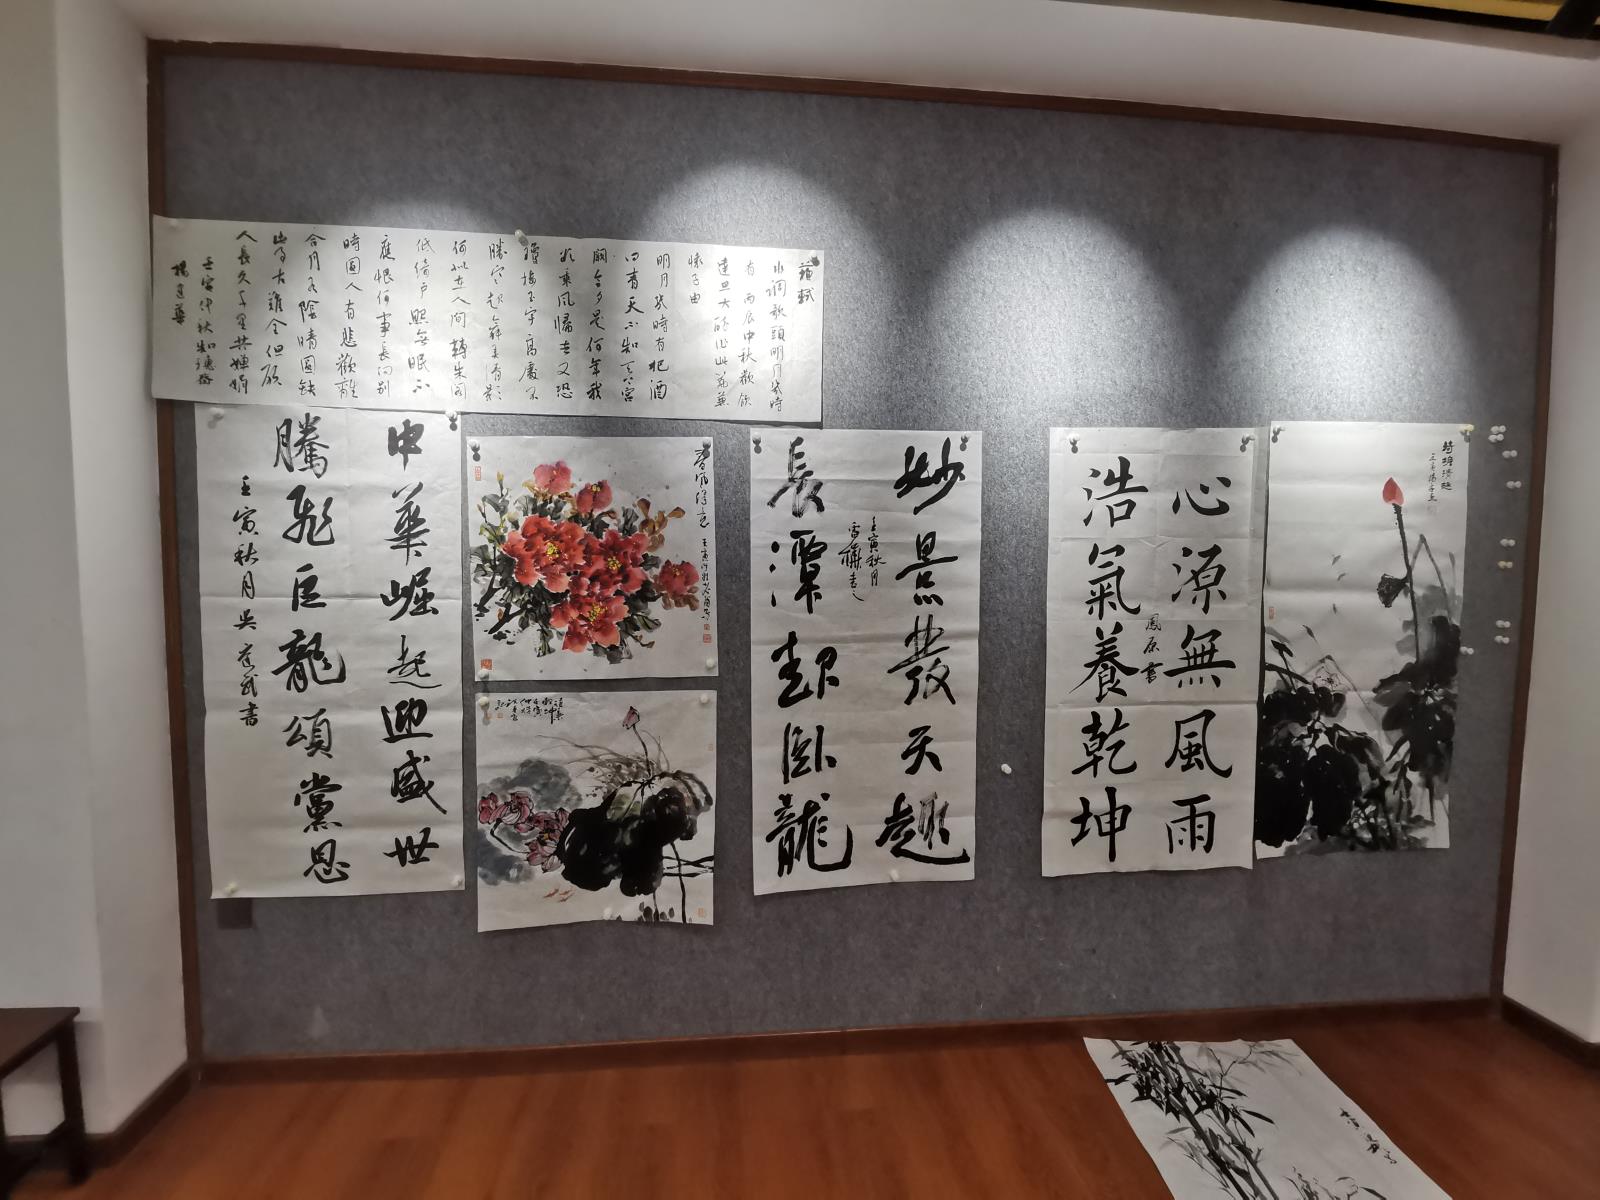 蘇軾
水調歌頭明月幾時
有 丙辰中秋歡飲
達旦大醉作此篇兼
懷子由
明月幾時有把酒
問青天不知天上宮
闕今夕是何年我
欲乘風歸去又恐
瓊樓玉宇高處不
勝寒起舞弄清影
何似在人間轉朱閣
低綺戶照無眠不
應恨何事長向別
時圓人有悲歡離
合月有陰晴圓缺
此事古難全但願
人長久千里共嬋娟
壬寅仲秋
中華崛起迎盛世
騰飛巨龍頌黨恩
壬寅秋月吳
書
妙景發天趣
長潭起臥龍
壬寅秋月
心源無風雨
浩氣養乾坤
鳳原書